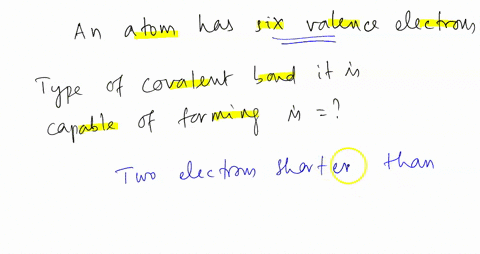 An atom has six valence electrons
Type of covalent bond it is
capable of forming is =?
Two electrons shorter than